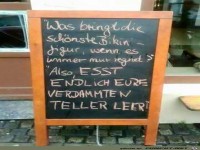 "Was bringt die
schönste Bikini-
figur, wenn es
immer nur regnet?"
"Also, ESST
ENDLICH EURE
VERDAMMTEN
TELLER LEER!"